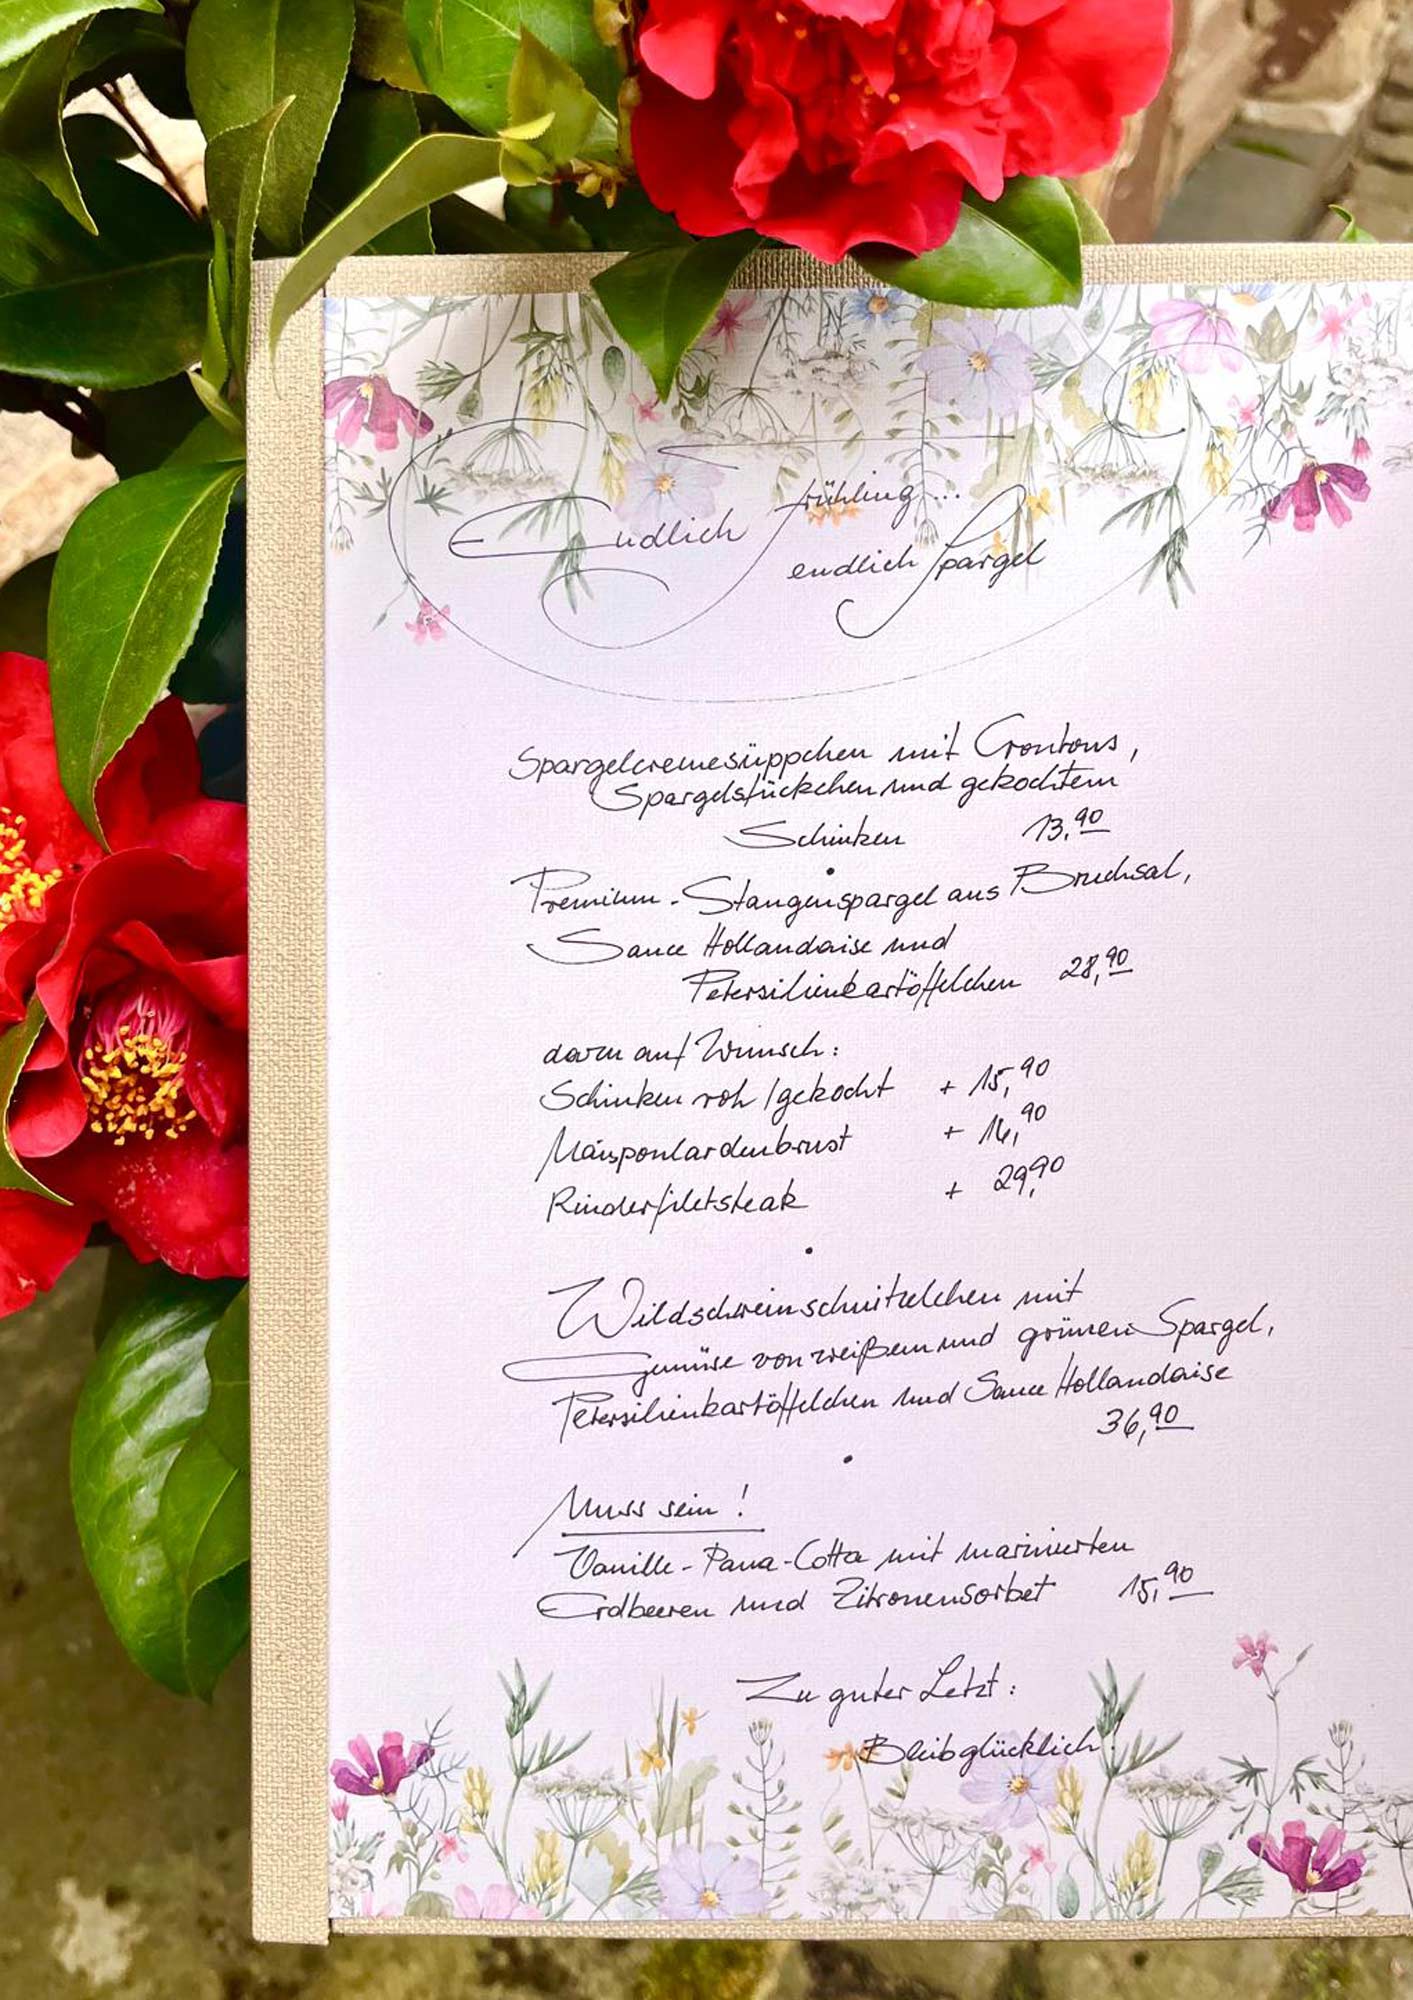 Endlich Frühling...
endlich Spargel
Spargelcremesüppchen mit Croutons,
Spargelstückchen und gekochtem
Schinken 13,90
Premium-Stangenspargel aus Bruchsal,
Sauce Hollandaise und
Petersilienkartöffelchen 28,90
dazu auf Wunsch:
Schinken roh/gekocht + 15,90
Maispoulardenbrust + 16,90
Rinderfiletsteak + 29,90
Wildschweinschnitzelchen mit
Gemüse von weißem und grünen Spargel,
Petersilienkartöffelchen und Sauce Hollandaise
36,90
Muss sein!
Vanille-Pana-Cotta mit marinierten
Erdbeeren und Zitronensorbet 15,90
Zu guter Letzt:
Bleib glücklich!